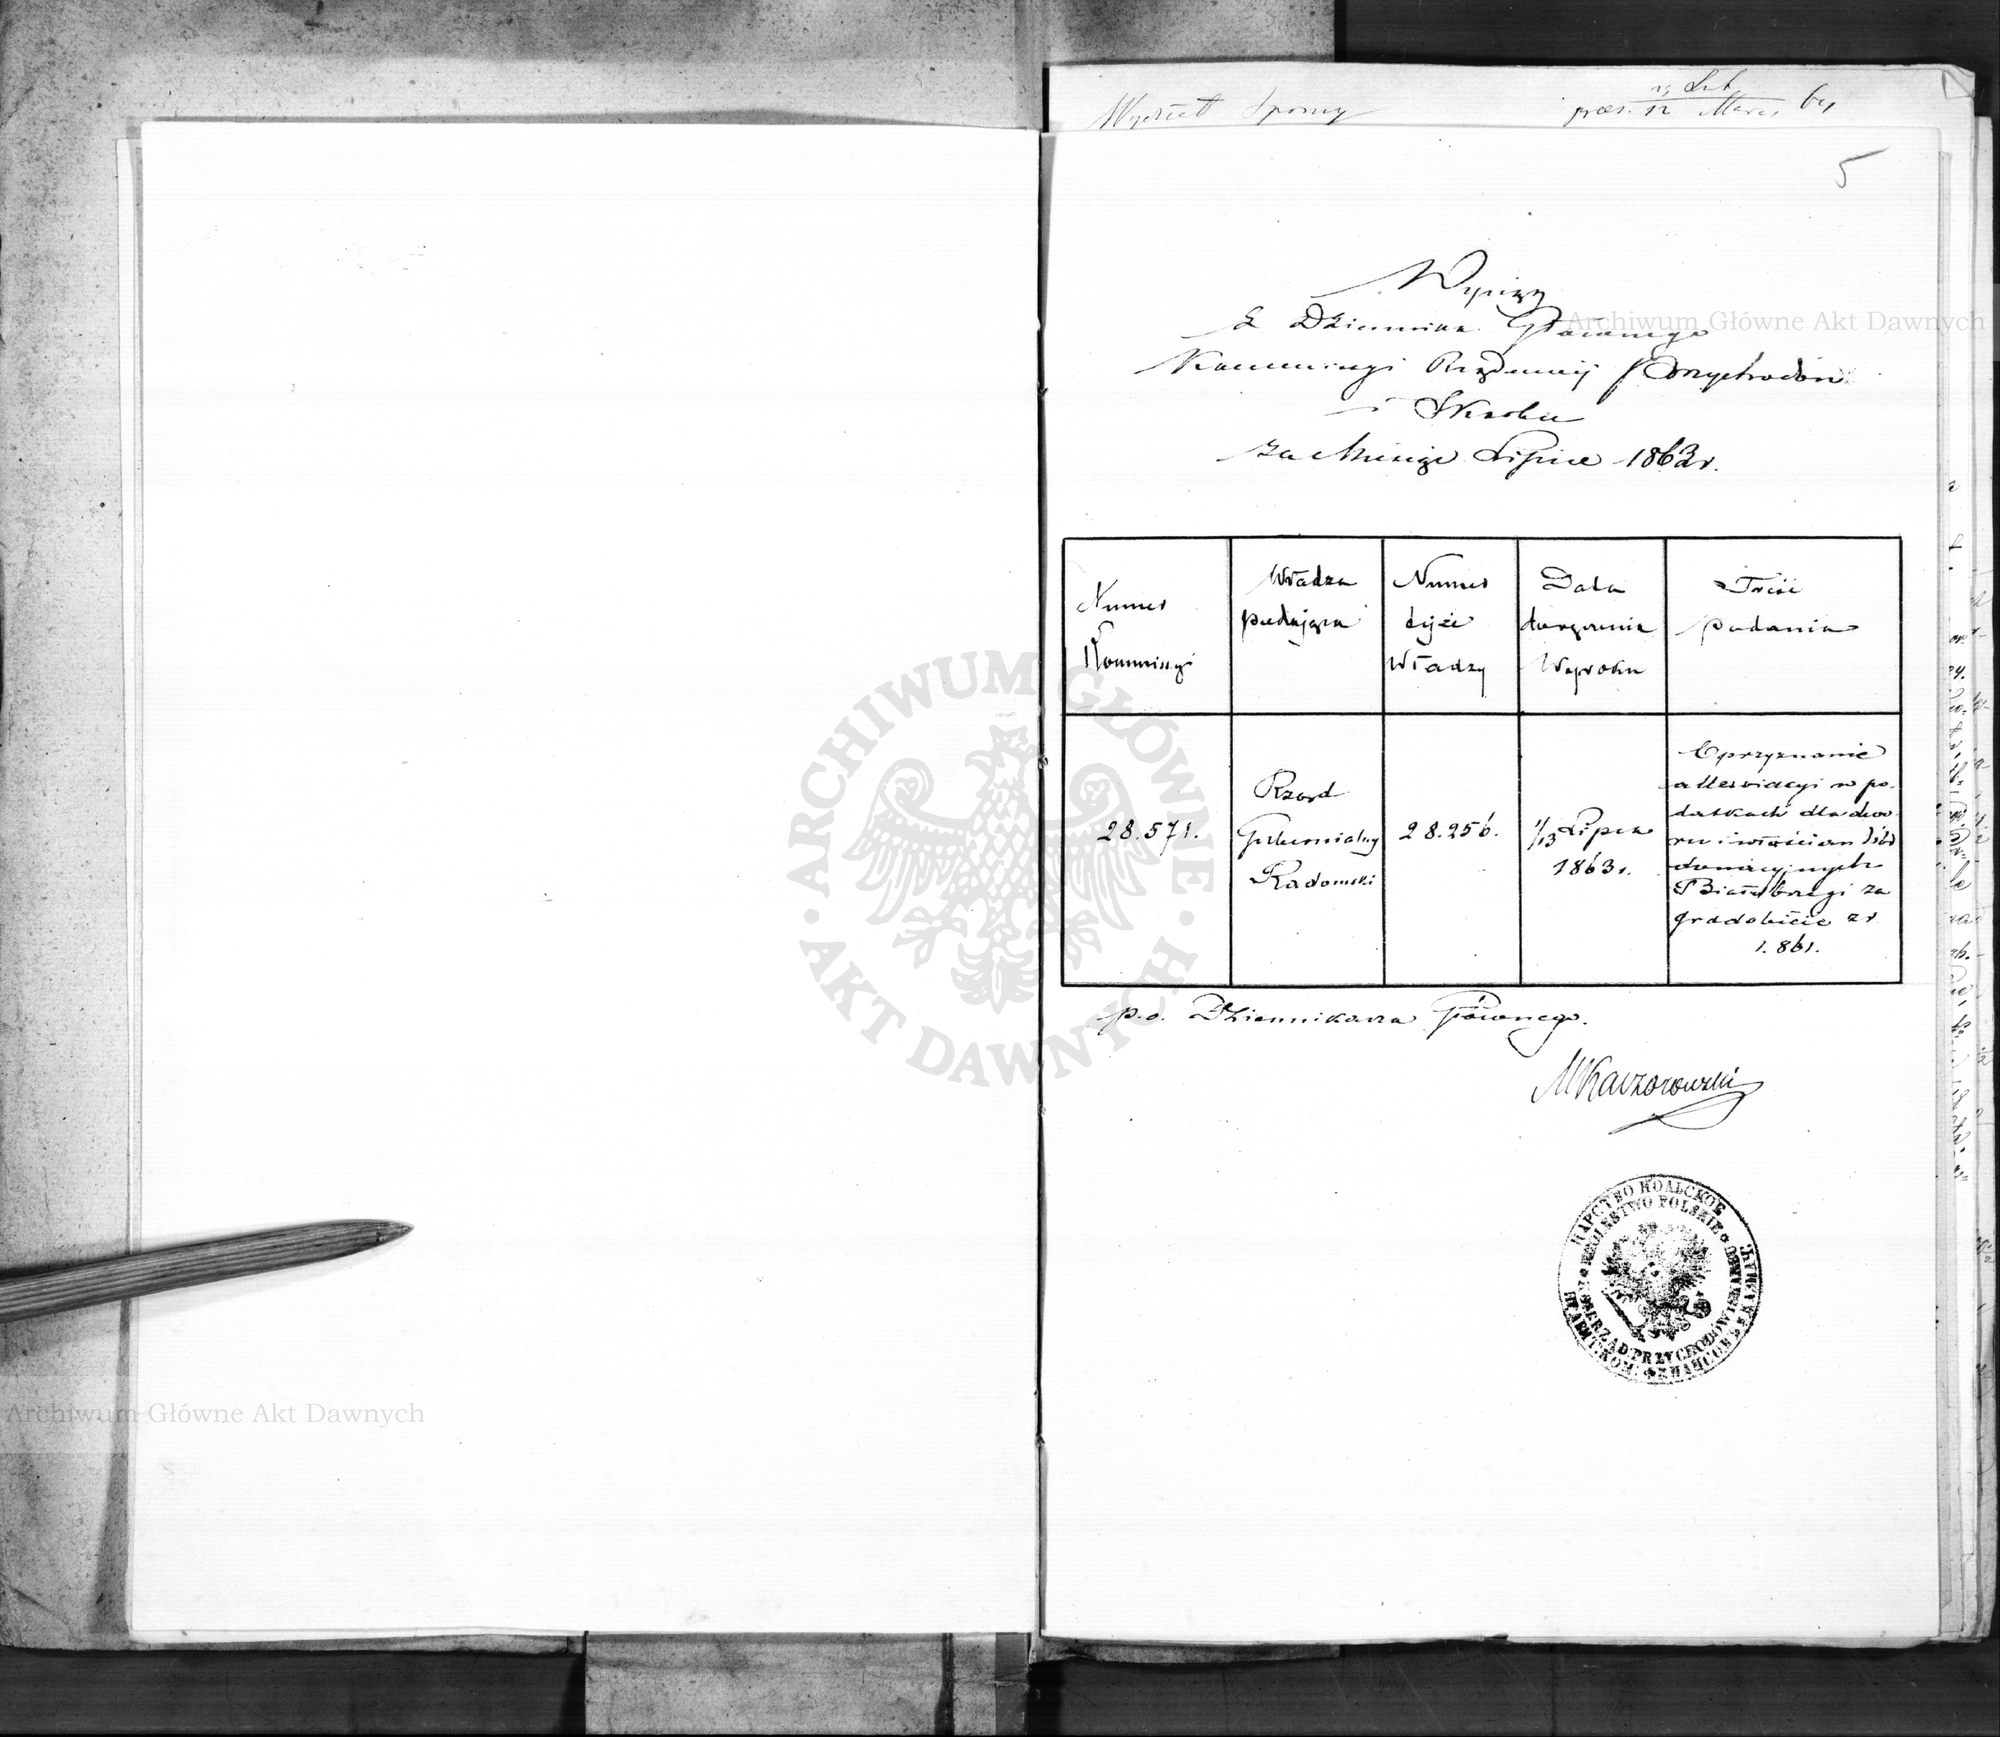 Wydział Sporny
praes. 12 Marca 64
5
Wyciąg
z Dziennika Głównego
Kommissyi Rządowej Przychodów
i Skarbu
za Miesiąc Lipiec 1863 r.
Numer
Kommissyi
Władza
podająca
Numer
tejże
Władzy
Data
doręczenia
Wyroku
Treść
podania
28.571.
Rząd
Gubernialny
Radomski
28.256.
1/13 Lipca
1863 r.
O przyznanie
allewiacyi w po-
datkach dla dwo-
ru i włościan dóbr
donacyjnych
Białobrzegi za
gradobicie z r.
1861.
p. o. Dziennikarza Głównego.
MKaczorowski
ЦАРСТВО ПОЛЬСКОЕ
KRÓLESTWO POLSKIE
KOM: RZĄD: PRZYCHODÓW I SKARBU
Archiwum Główne Akt Dawnych
ARCHIWUM GŁÓWNE
AKT DAWNYCH
Archiwum Główne Akt Dawnych